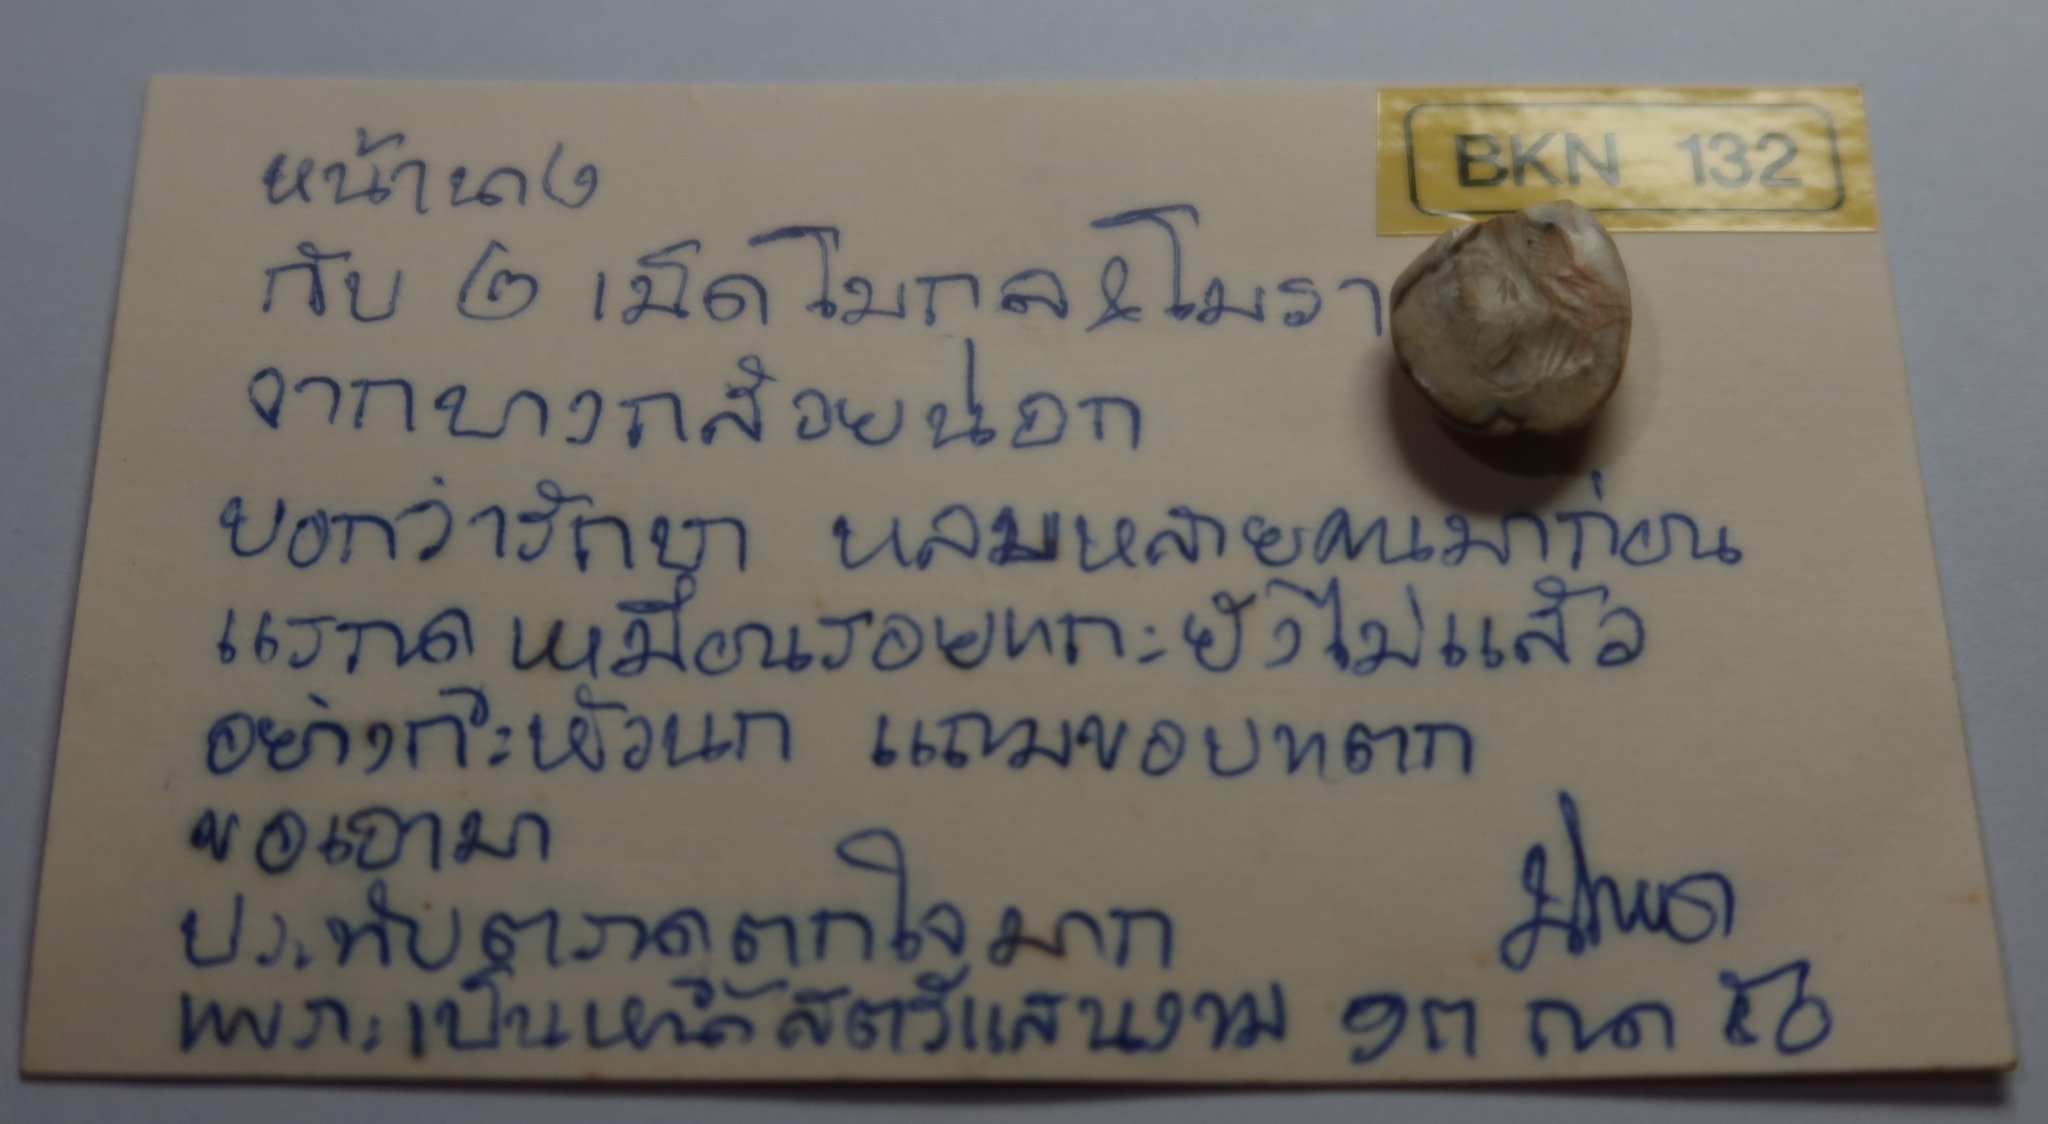 BKN 132
หน้านาง
กับ ๒ เม็ดโมกล&โมรา
จากบางกล้วยนอก
บอกว่ารักษา หลายคนมาก่อน
แรก เหมือนรอยกะยังไม่แล้ว
อย่างกะหัวนก แถมขอบ
ขอเอามา
ประทับตราดูตกใจมาก
เพราะเป็นหน้าสตรีแสนงาม ๑๓ กค